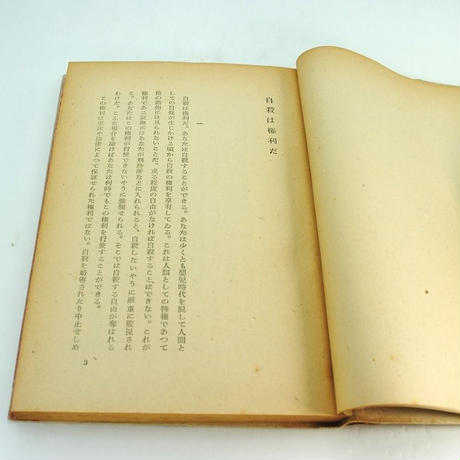 自殺は権利だ
一
自殺は権利だ。あなたは自殺することができる。あなたは少くとも嬰児時代を脱して人間と
しての自覚が生じかける頃から自殺の権利を享有してゐる。これは人類としての特権であつて
他の動物には見られないことだ。或る程度の自由がなければ自殺することはできない。これが
権利である証拠にはあなたが刑務所などに入れられると、自殺しないやうに厳重に監視され
る。あなたはこの権利が行使できないやうに強制せられる。そこでは自殺する自由が奪はれる
わけだ。こんな場合を除けばあなたは何時でもこの権利を行使することができる。
この権利は憲法や法律によつて保証せられた権利ではない。自殺を妨害されたり中止せしめ
3